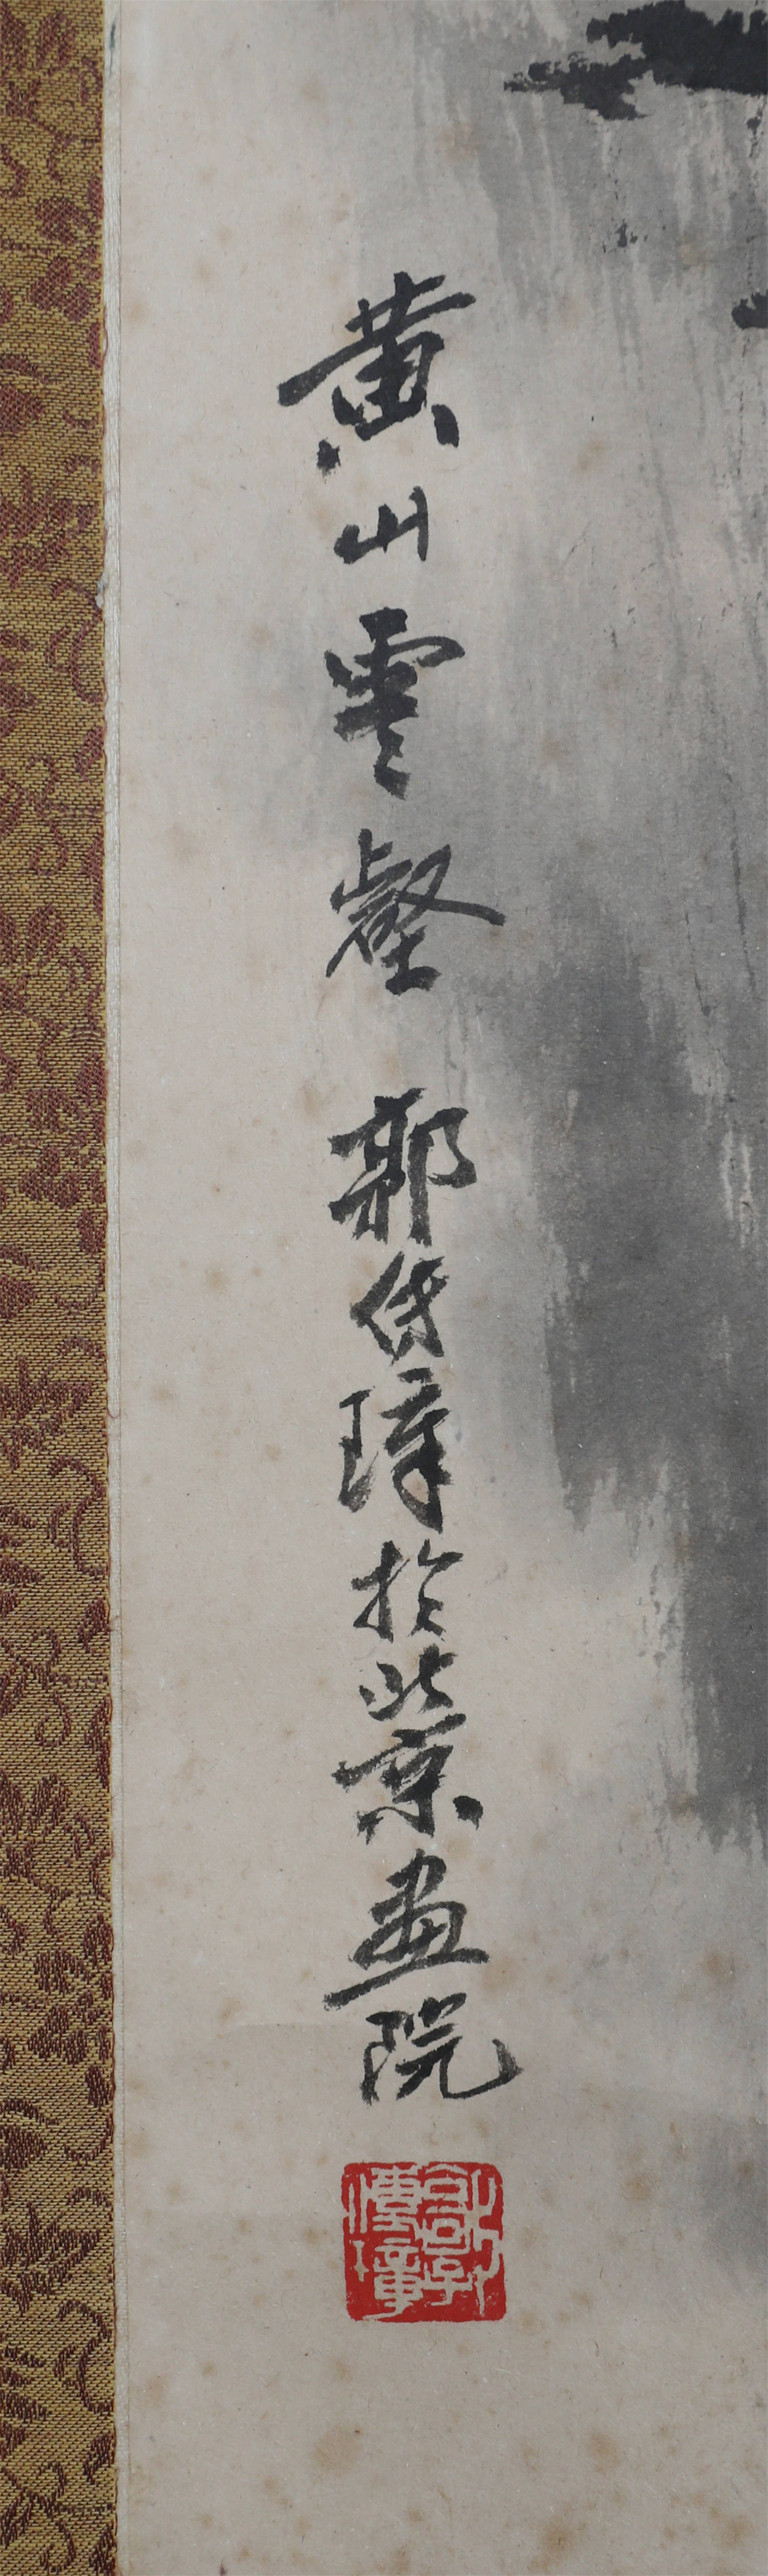 黄山雲壑 郭传璋於北京画院
郭傳璋